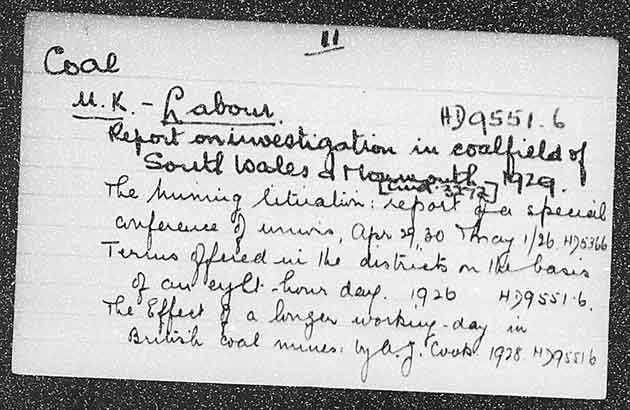 11
Coal
U.K. - Labour.
HD9551.6
Report on investigation in coalfield of
South Wales & Monmouth 1929.
[Cmd. 3272]
The mining situation: report of a special
conference of unions, Apr 29, 30 & May 1/26. HD5366
Terms offered in the districts on the basis
of an eight-hour day. 1926 HD9551.6.
The Effect of a longer working-day in
British coal mines: by A.J. Cook. 1928. HD9551.6